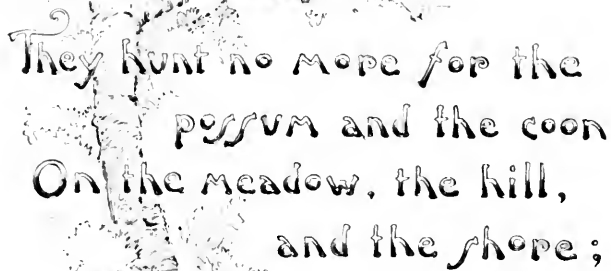 They hunt no more for the
possum and the coon
On the meadow, the hill,
and the shore;